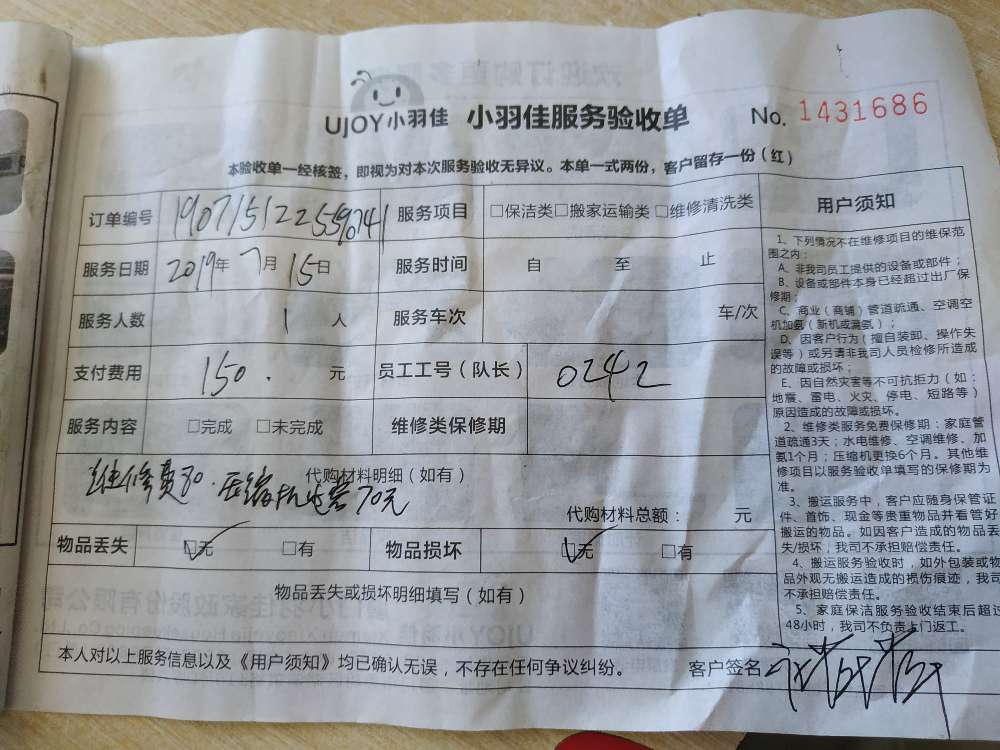 UJOY小羽佳 小羽佳服务验收单 No. 1431686
本验收单一经核签，即视为对本次服务验收无异议。本单一式两份，客户留存一份（红）
订单编号 服务项目 □保洁类□搬家运输类 □维修清洗类
服务日期 2019年 7月 15日 服务时间 自 至 止
服务人数 1 人 服务车次 车/次
支付费用 150. 元 员工工号（队长） 0242
服务内容 □完成 □未完成 维修类保修期
代购材料明细（如有）
维修费80. 压缩机电容70元
代购材料总额： 元
物品丢失 □无 □有 物品损坏 □无 □有
物品丢失或损坏明细填写（如有）
本人对以上服务信息以及《用户须知》均已确认无误，不存在任何争议纠纷。 客户签名
用户须知
1、下列情况不在维修项目的维保范
围之内：
A、非我司员工提供的设备或部件；
B、设备或部件本身已经超过出厂保
修期；
C、商业（商铺）管道疏通、空调空
机加氨（新机或漏氨）；
D、因客户行为（擅自装卸、操作失
误等）或另请非我司人员检修所造成
的故障或损坏；
E、因自然灾害等不可抗拒力（如：
地震、雷电、火灾、停电、短路等）
原因造成的故障或损坏。
2、维修类服务免费保修期：家庭管
道疏通3天；水电维修、空调维修、加
氨1个月；压缩机更换6个月。其他维
修项目以服务验收单填写的保修期为
准。
3、搬运服务中，客户应随身保管证
件、首饰、现金等贵重物品并看管好
搬运的物品。如因客户造成的物品丢
失/损坏，我司不承担赔偿责任。
4、搬运服务验收时，如外包装或物
品外观无搬运造成的损伤痕迹，我司
不承担赔偿责任。
5、家庭保洁服务验收结束后超过
48小时，我司不负责上门返工。